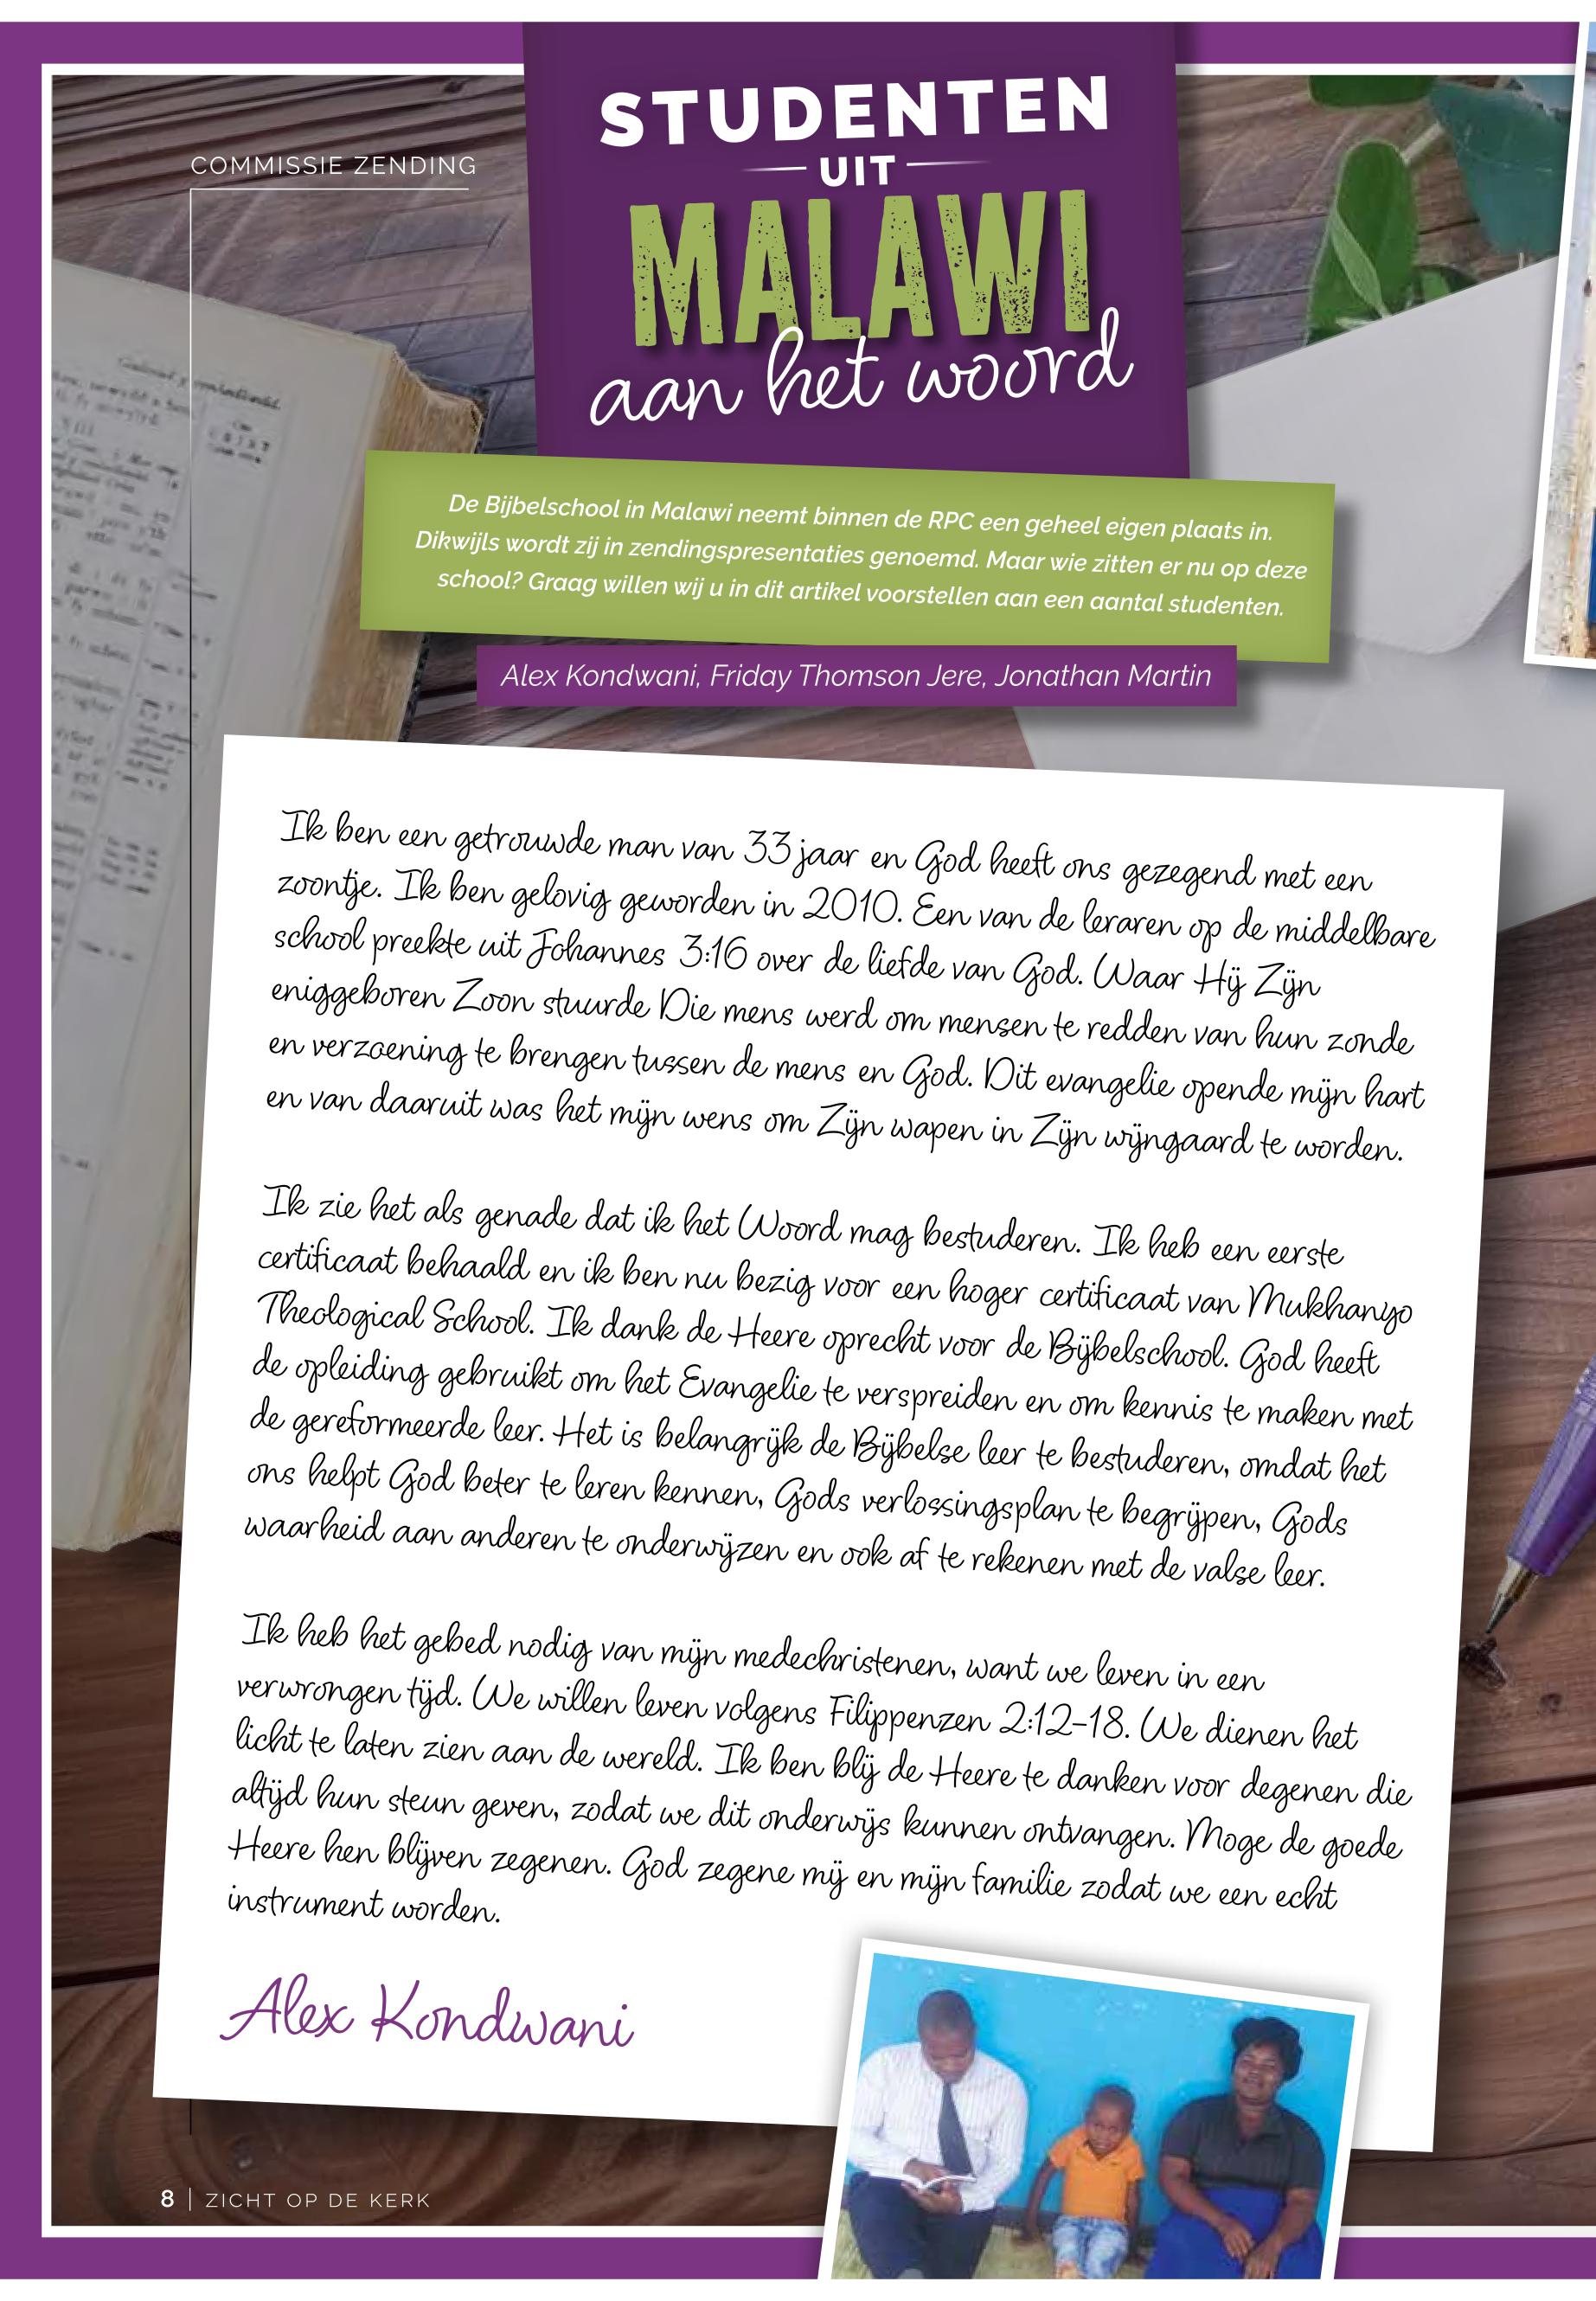 COMMISSIE ZENDING
STUDENTEN
UIT
MALAWI
aan het woord
De Bijbelschool in Malawi neemt binnen de RPC een geheel eigen plaats in.
Dikwijls wordt zij in zendingspresentaties genoemd. Maar wie zitten er nu op deze
school? Graag willen wij u in dit artikel voorstellen aan een aantal studenten.
Alex Kondwani, Friday Thomson Jere, Jonathan Martin
Ik ben een getrouwde man van 33 jaar en God heeft ons gezegend met een
zoontje. Ik ben gelovig geworden in 2010. Een van de leraren op de middelbare
school preekte uit Johannes 3:16 over de liefde van God. Waar Hij Zijn
eniggeboren Zoon stuurde Die mens werd om mensen te redden van hun zonde
en verzoening te brengen tussen de mens en God. Dit evangelie opende mijn hart
en van daaruit was het mijn wens om Zijn wapen in Zijn wijngaard te worden.
Ik zie het als genade dat ik het Woord mag bestuderen. Ik heb een eerste
certificaat behaald en ik ben nu bezig voor een hoger certificaat van Mukhanyo
Theological School. Ik dank de Heere oprecht voor de Bijbelschool. God heeft
de opleiding gebruikt om het Evangelie te verspreiden en om kennis te maken met
de gereformeerde leer. Het is belangrijk de Bijbelse leer te bestuderen, omdat het
ons helpt God beter te leren kennen, Gods verlossingsplan te begrijpen, Gods
waarheid aan anderen te onderwijzen en ook af te rekenen met de valse leer.
Ik heb het gebed nodig van mijn medechristenen, want we leven in een
verwrongen tijd. We willen leven volgens Filippenzen 2:12-18. We dienen het
licht te laten zien aan de wereld. Ik ben blij de Heere te danken voor degenen die
altijd hun steun geven, zodat we dit onderwijs kunnen ontvangen. Moge de goede
Heere hen blijven zegenen. God zegene mij en mijn familie zodat we een echt
instrument worden.
Alex Kondwani
8 | ZICHT OP DE KERK